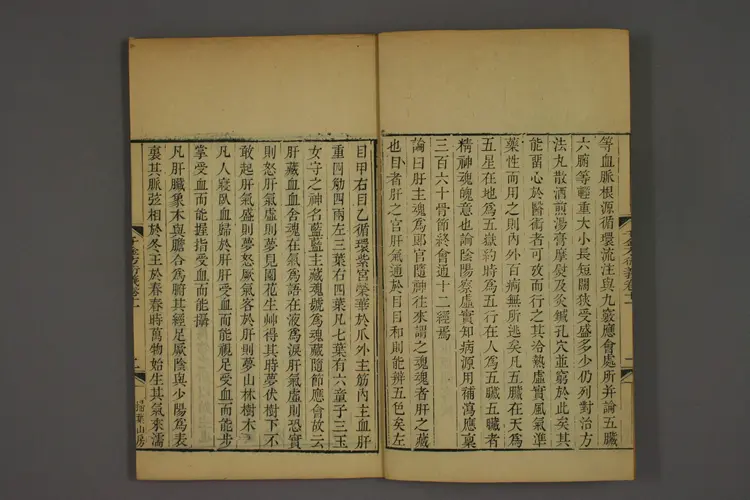 等血脈根源循環流注與九竅應會處所并論五臟
六腑等輕重大小長短闊狹受盛多少仍列對治方
法丸散酒煎湯膏摩熨及灸鍼孔穴並窮於此矣其
能留心於醫術者可攷而行之其冷熱虛實風氣準
藥性而用之則內外百痾無所逃矣凡五臟在天為
五星在地為五嶽約時為五行在人為五臟五臟者
精神魂魄意也論陰陽察虛實知病源用補瀉應稟
三百六十骨節終會通十二經焉
論曰肝主魂為郎官隨神往來謂之魂魂者肝之藏
也目者肝之官肝氣通於目目和則能辨五色矣左
目甲右目乙循環紫宮榮華於爪外主筋內主血肝
重四觔四兩左三葉右四葉凡七葉有六童子三玉
女守之神名藍藍主藏魂號為魂藏隨節應會故云
肝藏血血舍魂在氣為語在液為淚肝氣虛則恐實
則怒肝氣虛則夢見園花生艸得其時夢伏樹下不
敢起肝氣盛則夢怒厥氣客於肝則夢山林樹木
凡人寢臥血歸於肝肝受血而能視足受血而能步
掌受血而能握指受血而能攝
凡肝臟象木與膽合為腑其經足厥陰與少陽為表
裏其脈弦相於冬王於春春時萬物始生其氣來濡
千金方衍義卷十一
二
掃葉山房